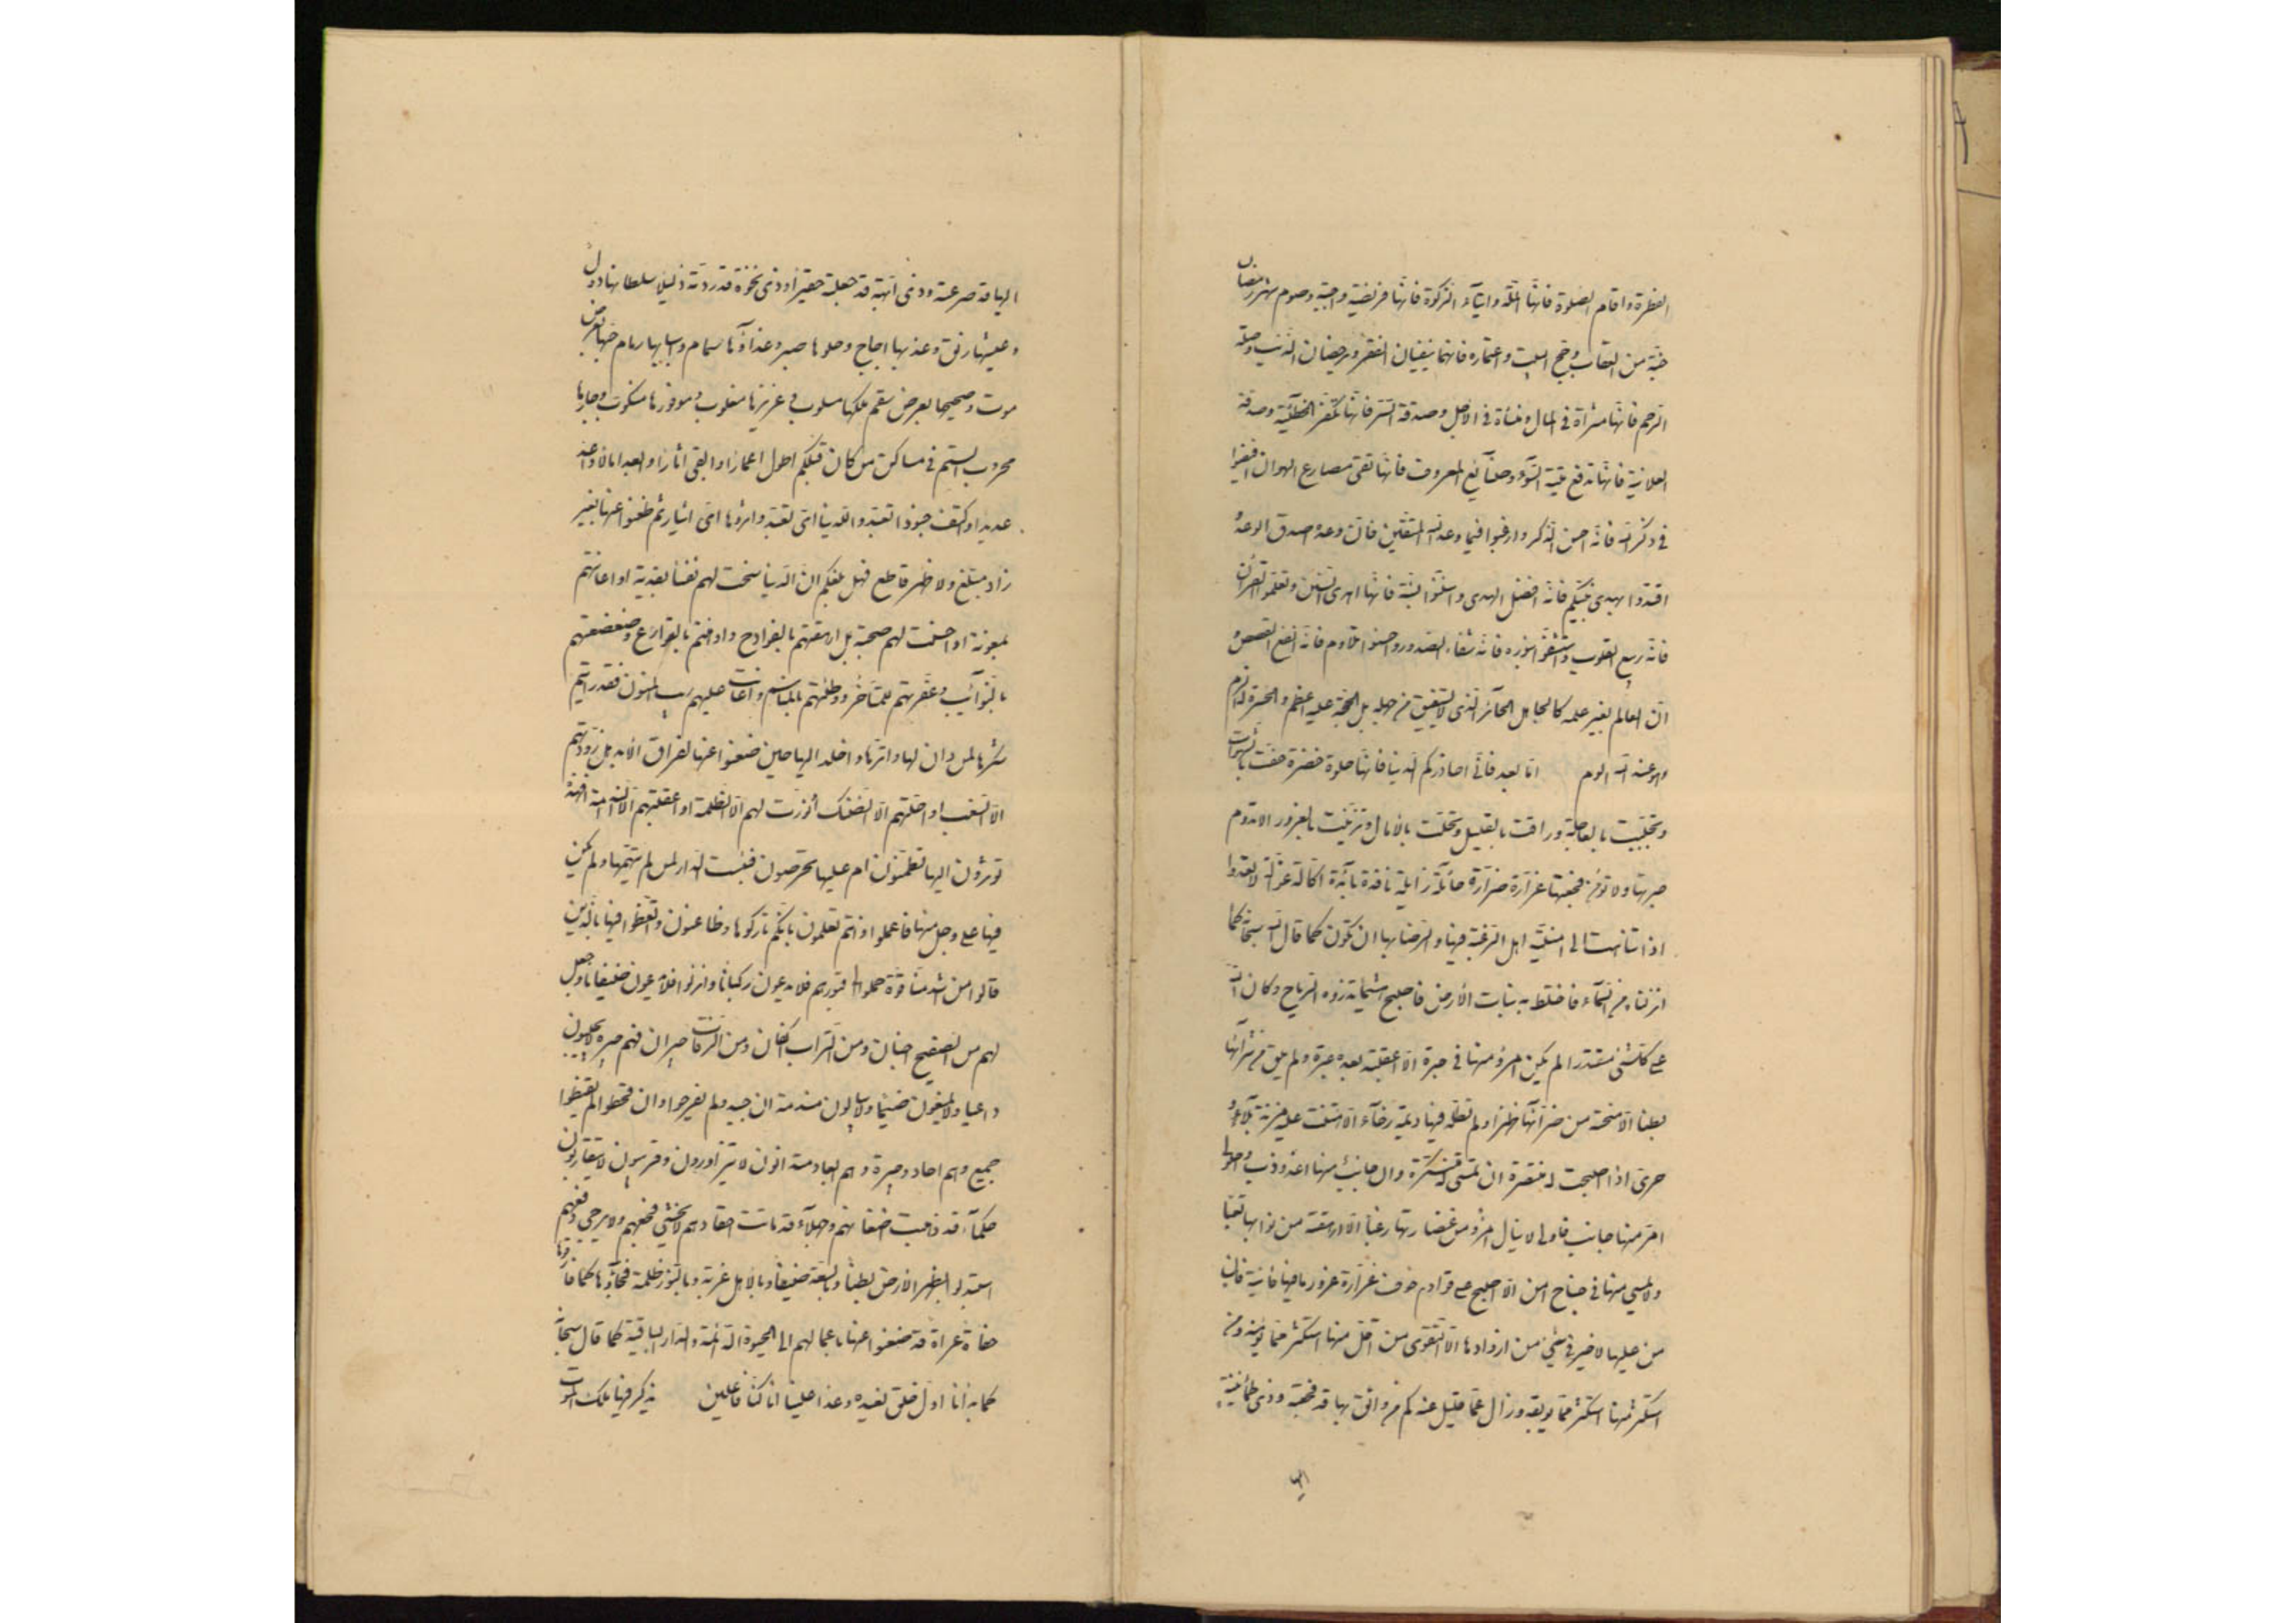 الفطرة واقام الصلوة فانها الملة وايتآء الزكوة فانها فريضة واجبة وصوم شهر رمضان
جنة من العقاب وحج البيت واعتماره فانهما ينفيان الفقر ويرحضان الذنب وصلة
الرحم فانها مثراة فى المال ومنساة فى الاجل وصدقة السر فانها تكفر الخطيئة وصدقة
العلانية فانها تدفع ميتة السوء وصنآيع المعروف فانها تقى مصارع الهوان افيضوا
فى ذكر الله فانه احسن الذكر وارغبوا فيما وعد الله المتقين فان وعده اصدق الوعد
اقتدوا بهدى نبيكم فانه افضل الهدى واستنوا بسنته فانها اهدى السنن وتعلموا القرآن
فانه ربيع القلوب واستشفوا بنوره فانه شفاء الصدور واحسنوا تلاوته فانه انفع القصص
ان العالم بغير علمه كالجاهل الحآئر الذى لا يستفيق من جهله بل الحجة عليه اعظم والحسرة له الزم
وهو عند الله الوم اما بعد فانى احذركم الدنيا فانها حلوة خضرة حفت بالشهوات
وتحببت بالعاجلة وراقت بالقليل وتحلت بالآمال وتزينت بالغرور لا تدوم
حبرتها ولا تؤمن فجعتها غرارة ضرارة حائلة زايلة نافدة بآئدة اكالة غوالة لا تعدوا
اذا تناهت الى امنية اهل الرغبة فيها والرضا بها ان تكون كما قال الله سبحانه كما
انزلناه من السمآء فاختلط به نبات الأرض فاصبح هشيما تذروه الرياح وكان الله
على كلشئ مقتدرا لم يكن امرؤ منها فى حبرة الا اعقبته بعده عبرة ولم يلق من سرآئها
بطنا الا منحته من ضرآئها ظهرا ولم تطله فيها ديمة رخآء الا هتنت عليه مزنة بلآء و
حرى اذا اصبحت له منتصرة ان تمسى له متنكرة وان جانب منها اعذوذب واحلولى
امر منها جانب فاوبى لا ينال امرؤ من غضارتها رغبا الا ارهقته من نوائبها تعبا
ولا يمسى منها فى جناح امن الا اصبح على قوادم خوف غرارة غرور ما فيها فانية فان
من عليها لا خير فى شئ من ازوادها الا التقوى من اقل منها استكثر مما يؤمنه ومن
استكثر منها استكثر مما يوبقه وزال عما قليل عنه كم من واثق بها قد فجعته وذى طمأنينة
اليها
اليها قد صرعته وذى ابهة قد جعلته حقيرا وذى نخوة قد ردته ذليلا سلطانها دول
وعيشها رنق وعذبها اجاج وحلوها صبر وغذاؤها سمام واسبابها رمام حيها بعرض
موت وصحيحها بعرض سقم ملكها مسلوب وعزيزها مغلوب وموفورها منكوب وجارها
محروب الستم فى مساكن من كان قبلكم اطول اعمارا وابقى اثارا وابعد امالا واعد
عديدا واكثف جنودا تعبدوا للدنيا اى تعبد واثروها اى ايثار ثم ظعنوا عنها بغير
زاد مبلغ ولا ظهر قاطع فهل بلغكم ان الدنيا سخت لهم نفسا بفدية او اعانتهم
بمعونة او احسنت لهم صحبة بل ارهقتهم بالفوادح واوهنتهم بالقوارع وضعضعتهم
بالنوآئب وعفرتهم للمناخر ووطئتهم بالمناسم واعانت عليهم ريب المنون فقد رايتم
تنكرها لمن دان لها واثرها واخلد اليها حين ظعنوا عنها لفراق الأبد هل زودتهم
الا السغب او احلتهم الا الضنك او نورت لهم الا الظلمة او اعقبتهم الا الندامة افهذه
تؤثرون ام اليها تطمئنون ام عليها تحرصون فبئست الدار لمن لم يتهمها ولم يكن
فيها على وجل منها فاعملوا وانتم تعلمون بانكم تاركوها وظاعنون واتعظوا فيها بالذين
قالوا من اشد منا قوة حملوا الى قبورهم فلا يدعون ركبانا وانزلوا فلا يدعون ضيفانا وجعل
لهم من الصفيح اجنان ومن التراب اكفان ومن الرفات جيران فهم جيرة لا يجيبون
داعيا ولا يمنعون ضيما ولا يبالون مندبة ان جيدوا لم يفرحوا وان قحطوا لم يقنطوا
جميع وهم احاد وجيرة وهم ابعاد متدانون لا يتزاورون وقريبون لا يتقاربون
حلمآء قد ذهبت اضغانهم وجهلآء قد ماتت احقادهم لا يخشى فجعهم ولا يرجى دفعهم
استبدلوا بظهر الارض بطنا وبالسعة ضيقا وبالأهل غربة وبالنور ظلمة فجآؤها كما فارقوها
حفاة عراة قد ظعنوا عنها باعمالهم الى الحيوة الدائمة والدار الباقية كما قال سبحانه
كما بدأنا اول خلق نعيده وعدا علينا انا كنا فاعلين يذكر فيها ملك الموت